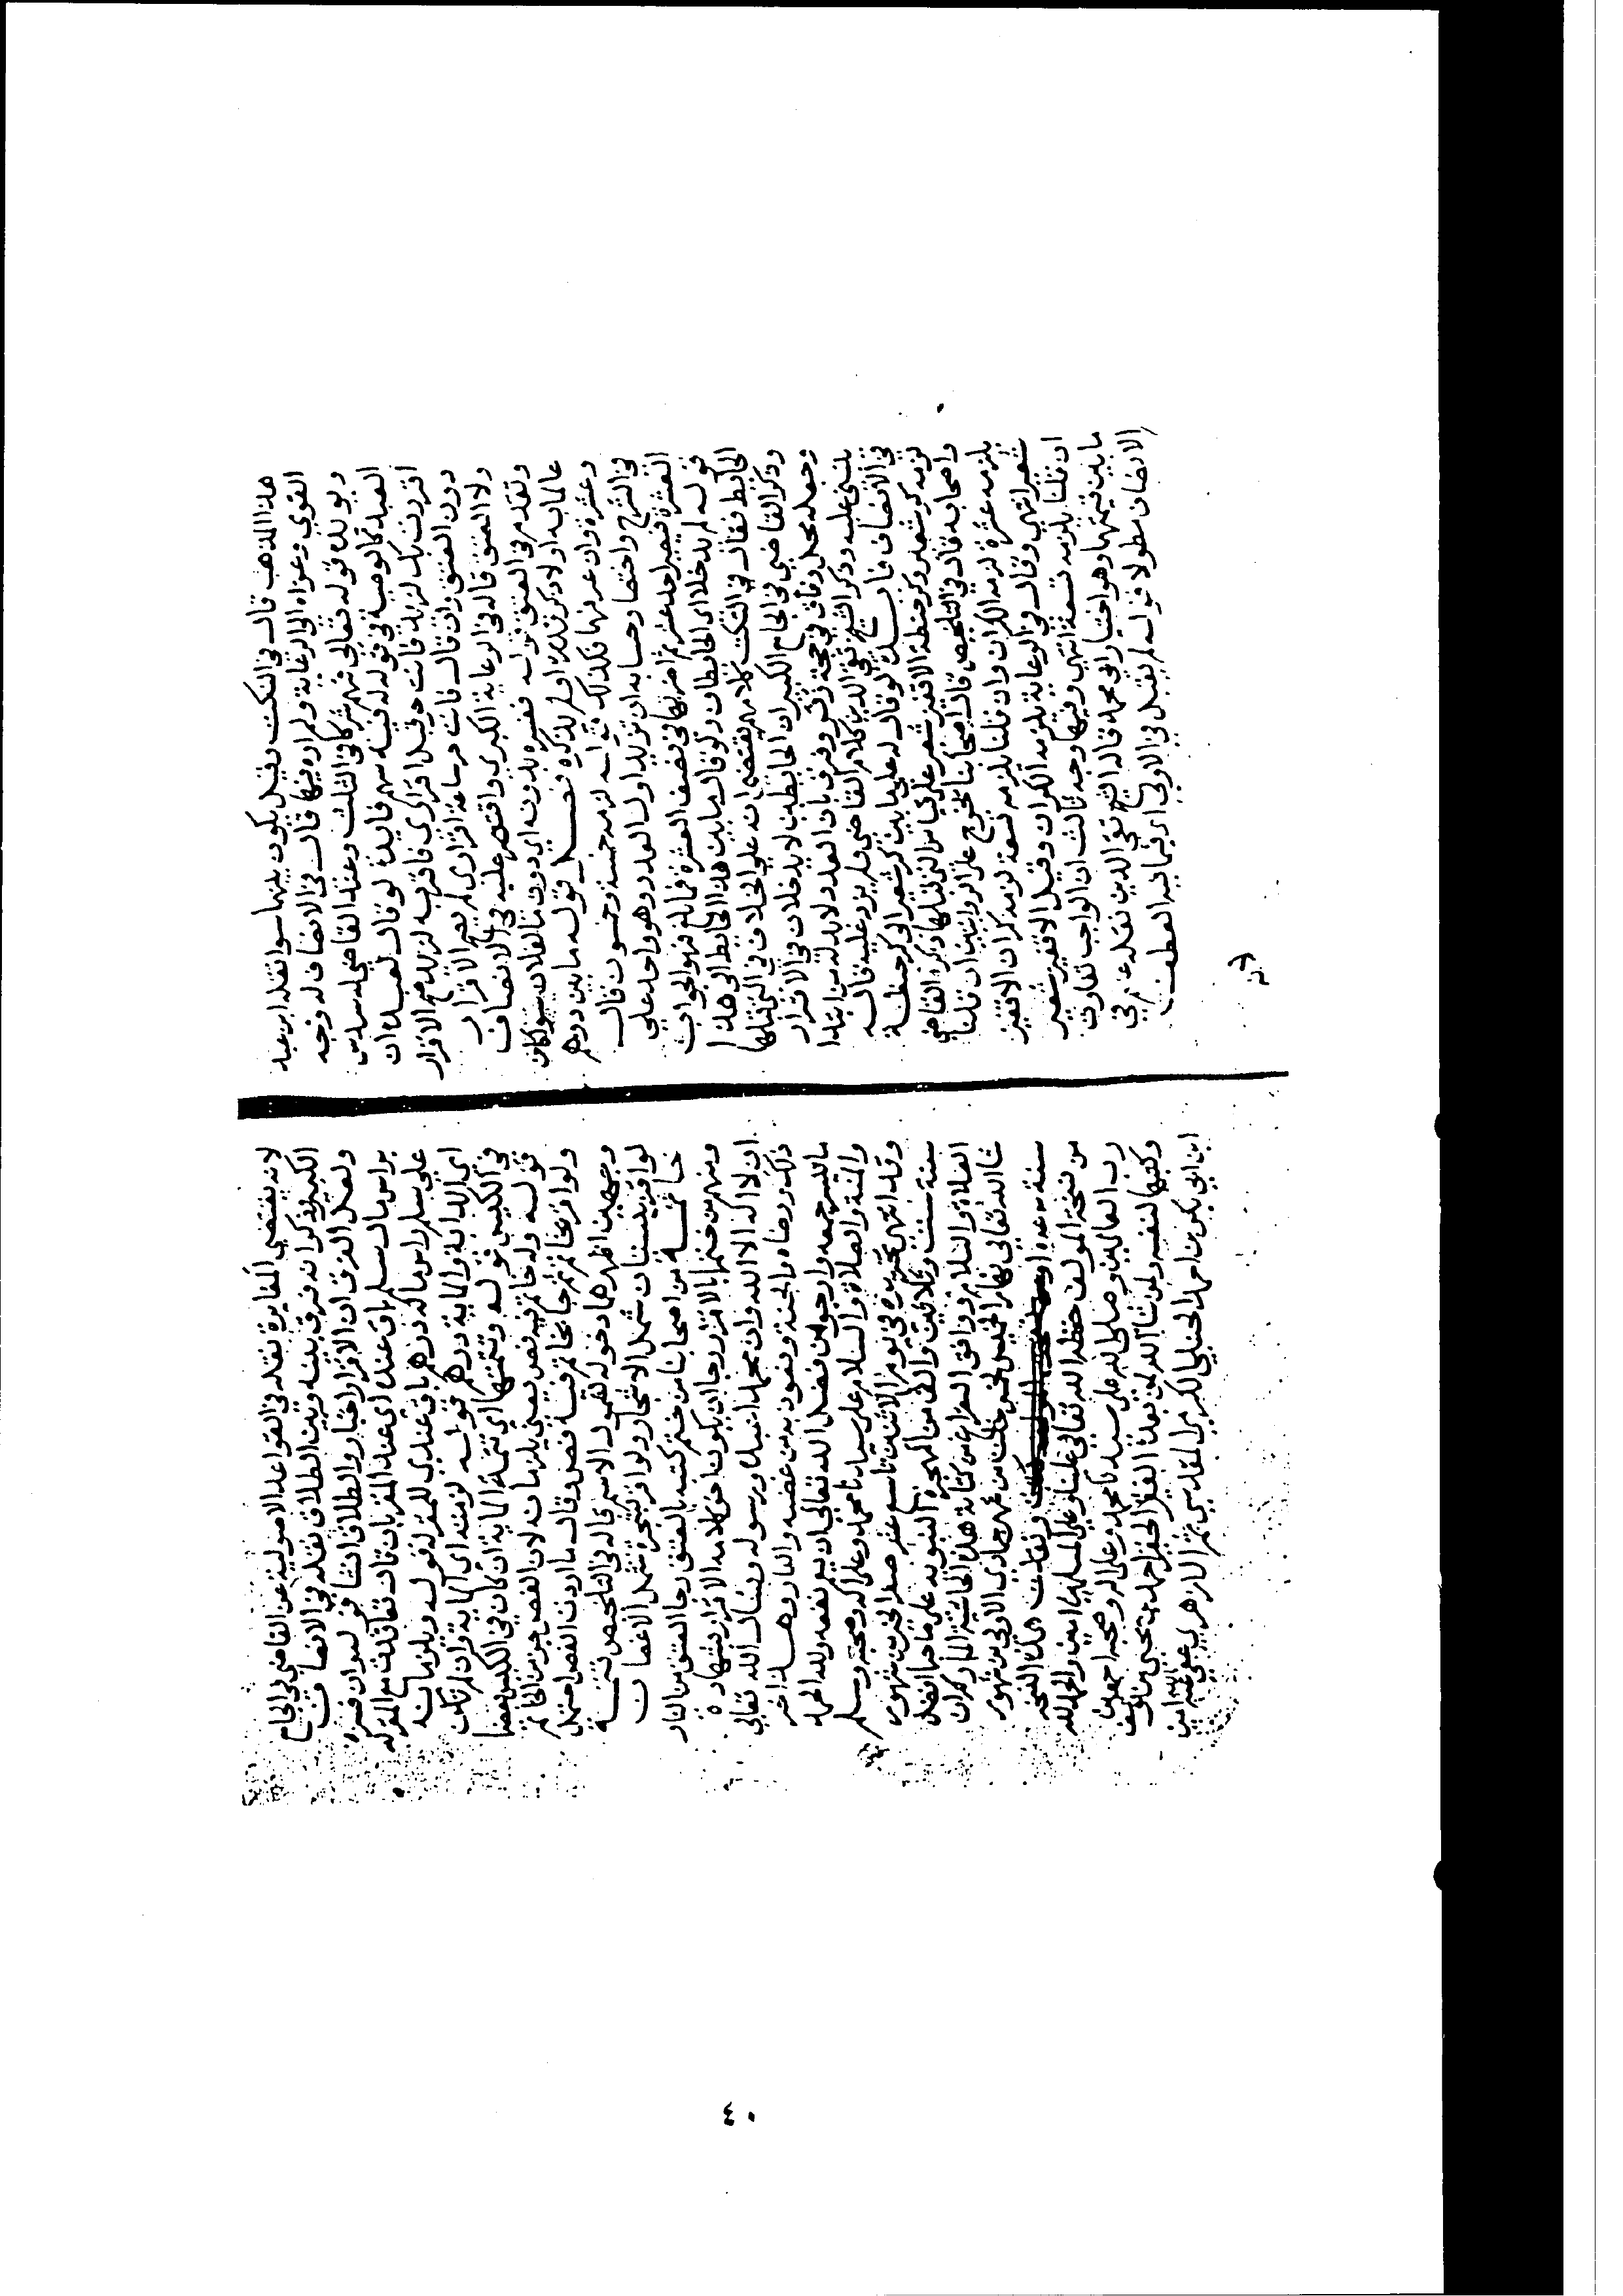 هذا المذهب قال في النكت وقيل يكون بينهما سوا نقله ابن عبد
القوي وعزاه الى الرعاية ولم اره فيها قال في الانصاف له وجه
ويؤيده قوله تعالى فهم شركا في الثلث وعند القاضي له سدس
العبد كالوصية في قوله له فيه سهم فايدة لو قال لعبده ان
اقررت بك لزيد فانت حر قبل اقراري فاقر به لزيد صح الاقرار
دون العتق وان قال فانت حر ساعة اقراري لم يصح الاقرار
ولا العتق قاله في الرعاية الكبرى واقتصر عليه في الانصاف
وتقدم في العتق قوله ففسره بدونه اي دون مال فلان سوا كان
عالما به اولا ذكر قدره او لم يذكره فصل قوله ما بين درهم
وعشرة وان عرفها فكذلك قوله لزمه خمسة وخمسون قال
في الشرح واختصار حسابه ان تزيد اول العدد وهو واحد على
العشرة فيصير احد عشر ثم اضربها في نصف العشرة فما بلغ فهو الجواب
قوله لم يدخلا اي الحايطان ولو قال ما بين هذا الحايط الى هذا
الحايط فقال في النكت كلامهم يقتضي انه على الخلاف في التي قبلها
وذكر القاضي في الجامع الكبير ان الحايطين لا يدخلان في الاقرار
وجعله محل وفاق في حجة زفر وفرق بان العدد لابد له من ابتدا
ينبني عليه وذكر الشيخ تقي الدين كلام القاضي ولم يزد عليه قاله
في الانصاف فايدة لو قال له علي ما بين كر شعير الى كر حنطة
لزمه كر شعير وكر حنطة الا قفيز شعير على قياس التي قبلها ذكره القاضي
واصحابه قال في التلخيص قال اصحابنا يخرج على الروايتين ان قلنا
يلزمه عشرة لزمه الكران وان قلنا يلزمه تسعة لزمه كران الا قفيز
شعير انتهى وقال في الرعاية يلزمه الكران وقيل الا قفيز شعير
ان قلنا يلزمه تسعة انتهى وفيها وجه ثالث ان الواجب تفاوت
ما بين قيمتهما وهو اختيار ابي محمد قاله الشيخ تقي الدين نقله عنه في
الانصاف مطولا قوله لم يقبل في الاولى اي ثمانية العطف
لانه يقتضي المغايرة نقله في القواعد الاصولية عن القاضي في الجامع
الكبير وذكر انه فرق بينه وبين الطلاق نقله في الانصاف
ولعل الفرق ان الاقرار اخبار والطلاق انشا قوله وان فسره
براس مال سلم باق عنده اي عند المقر بان قال تعاقدت مع المقر له
على سلم راس ماله درهم باق عندي للمقر له قوله ويلزمانه
اي الدابة والماية درهم قوله لزمته اي الماية وان لم تكن
في الكيس قوله وتتمتها اي تتمة الماية ان كان في الكيس بعضها
قوله وله خاتم فيه فص يعني يلزمانه لان الفص جز من الخاتم
ولو اقر بخاتم ثم جا بخاتم فيه فص وقال ما اردت الفص احتمل
وجهين اظهرهما دخوله لشمول الاسم قاله في التلخيص تتمة
لو اقر ببستان شمل الاشجار ولو اقر بشجرة شمل الاغصان
خاتمة من اصحابنا من ختم كتبه بالعتق رجا العتق من النار
ومنهم من ختمها بالاقرار رجا ان يكون اخر كلامه الاقرار بشهادة
ان لا اله الا الله وان محمدا عبده ورسوله ونسال الله تعالى
ذلك ورضاه والجنة ونعوذ به من غضبه والنار وهذا اخر
ما تيسر جمعه وارجو من فضل الله تعالى ان يعم نفعه ولله الحمد
والمنة والصلاة والسلام على سيدنا محمد وعلى اله وصحبه وسلم
وقد انتهى تحريره في يوم الاثنين تاسع عشر صفر الخير من شهور
سنة ست وثلاثين والف من الهجرة النبوية على صاحبها افضل
الصلاة والسلام ووافق الفراغ من كتابة هذه الحاشية المباركة ان
شا الله تعالى نهار الخميس لخمس خلت من شهر جمادى الاولى من شهور
سنة وكتبت ونقلت هذه النسخة
من نسخة المولف حفظه الله تعالى علينا وعلى المسلمين امين والحمد لله
رب العالمين وصلى الله على سيدنا محمد وعلى اله وصحبه اجمعين
وكتبها لنفسه ولمن شا الله من بعده الفقير الحقير احمد بن يحيى بن يوسف
ابن ابي بكر بن احمد الحنبلي الكرمي المقدسي ثم الازهري عفي عنه امين
٤٠